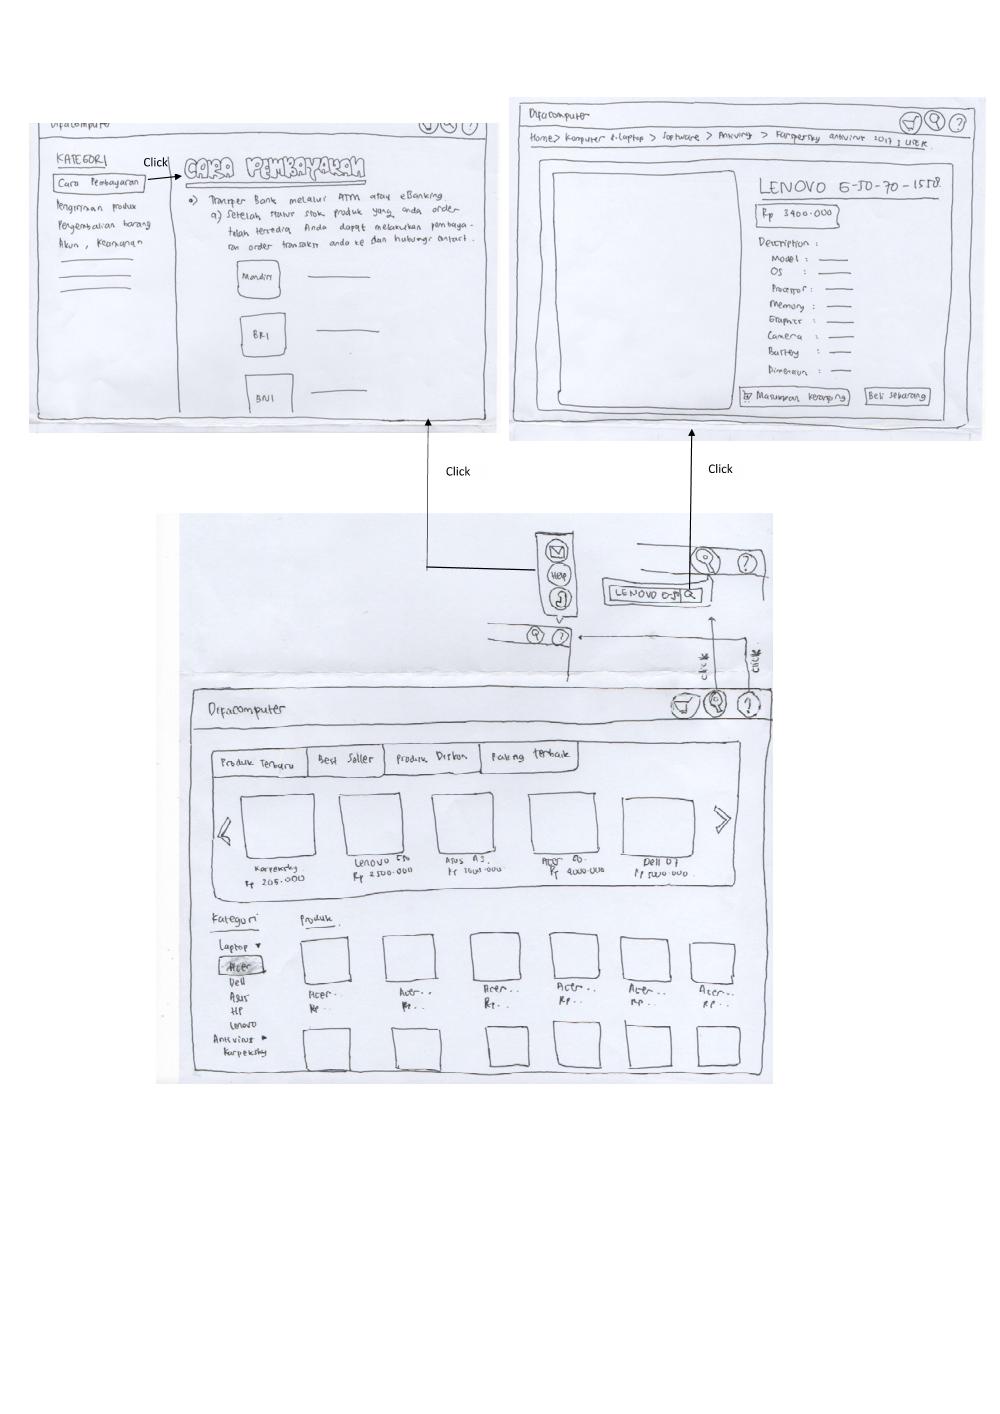 Difacomputer
KATEGORI
Click
CARA PEMBAYARAN
Cara Pembayaran
Pengiriman produk
Pengembalian barang
Akun, Keamanan
a) Transfer Bank melalui ATM atau eBanking
a) Setelah status stok produk yang anda order
telah tersedia Anda dapat melakukan pembaya-
ran order transaksi anda ke dan hubungi contact.
Mandiri
BRI
BNI
Difacomputer
?
Home > Komputer & Laptop > Software > Antivirus > Karpersky antivirus 2017 1 USER.
LENOVO G-50-70-1558.
Rp 3400.000
Description :
Model :
OS :
Processor :
Memory :
Graphic :
Camera :
Battery :
Dimension :
Masukkan keranjang
Beli sekarang
Click
Click
Help
?
LENOVO G-50
?
Click
Click
Difacomputer
?
Produk Terbaru
Best Seller
Produk Diskon
Paling Terbaik
Karpeksky
Rp 205.000
Lenovo
Rp 2500.000
Asus A3.
Acer
Rp 4000.000
Dell D7
Rp 5000.000
Kategori
Produk.
Laptop
Acer
Dell
Asus
HP
Lenovo
Antivirus
Karpeksky
Acer..
Rp..
Acer..
Rp..
Acer..
Rp..
Acer..
Rp..
Acer..
Rp..
Acer..
Rp..